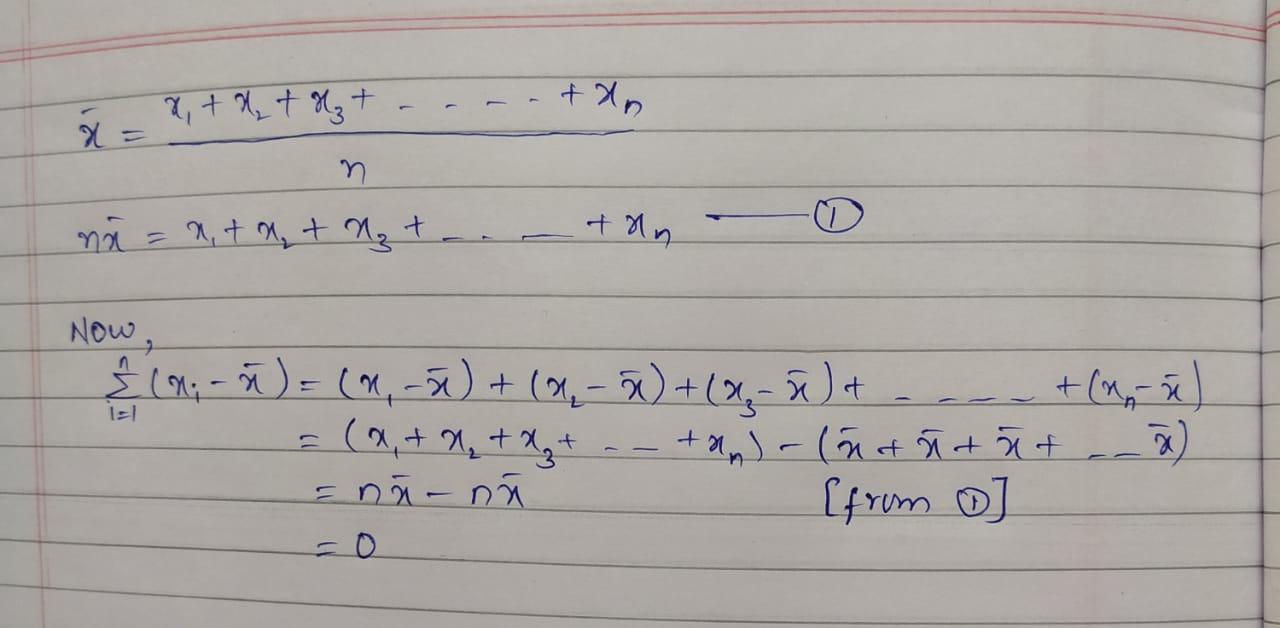 x̄ = (x₁ + x₂ + x₃ + - - - - + xₙ) / n
nx̄ = x₁ + x₂ + x₃ + - - - + xₙ —— ①
Now,
∑ᵢ₌₁ⁿ (xᵢ - x̄) = (x₁ - x̄) + (x₂ - x̄) + (x₃ - x̄) + - - - - + (xₙ - x̄)
= (x₁ + x₂ + x₃ + - - - + xₙ) - (x̄ + x̄ + x̄ + - - x̄)
= nx̄ - nx̄ [from ①]
= 0